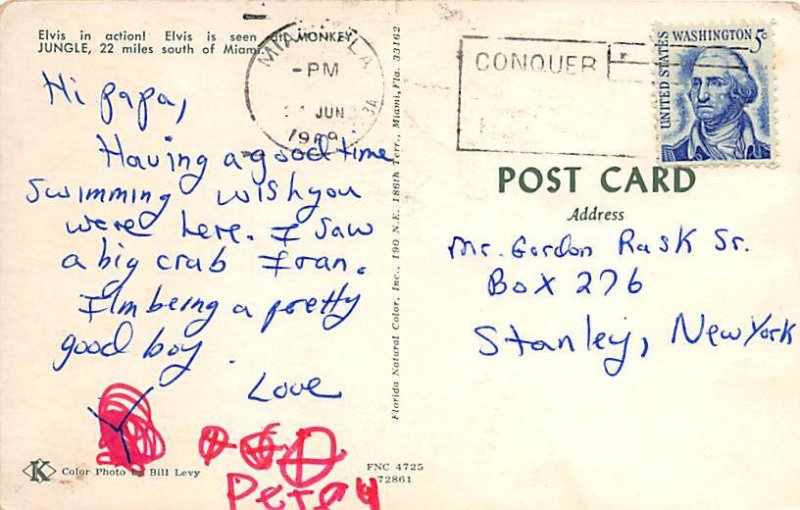 Elvis in action! Elvis is seen at MONKEY
JUNGLE, 22 miles south of Miami.
Hi papa,
Having a good time
swimming wish you
were here. I saw
a big crab I ran.
I'm being a pretty
good boy.
Love
Color Photo by Bill Levy
K
FNC 4725
72861
Florida Natural Color, Inc., 190 N.E. 186th Terr., Miami, Fla. 33162
MIAMI, FLA
-PM
JUN
1969
CONQUER
UNITED STATES
WASHINGTON 5c
POST CARD
Address
Mr. Gordon Rask Sr.
Box 276
Stanley, New York